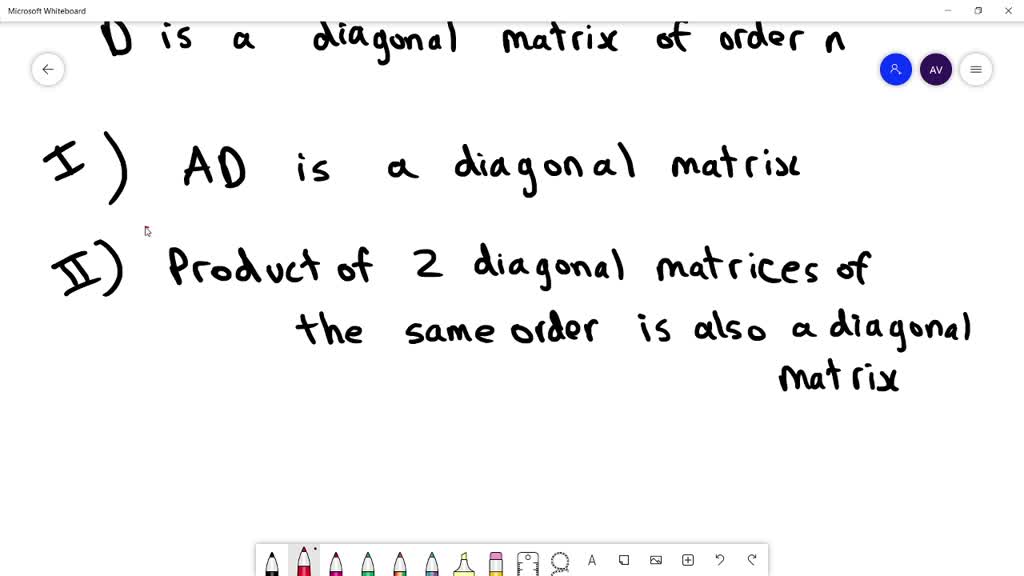 Microsoft Whiteboard
D is a diagonal matrix of order n
AV
I) AD is a diagonal matrix
II) Product of 2 diagonal matrices of
the same order is also a diagonal
matrix
A